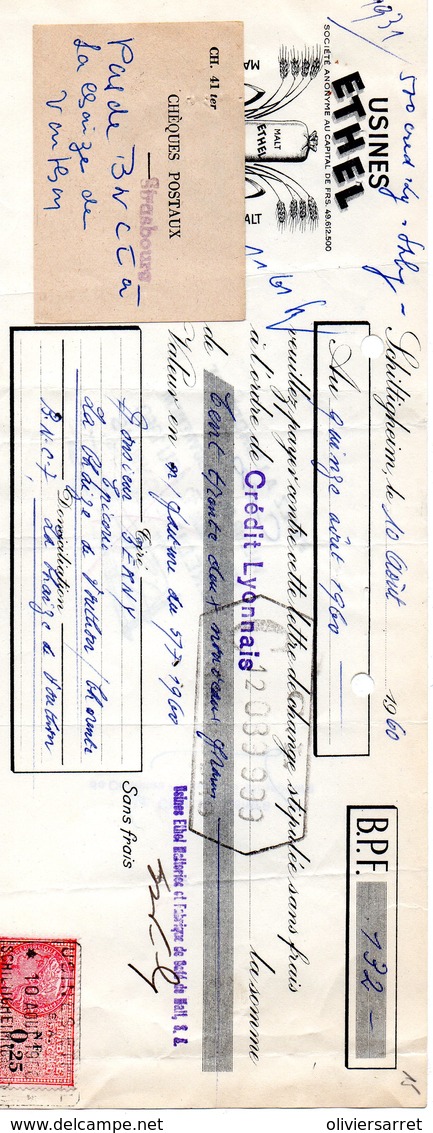 USINES
ETHEL
SOCIÉTÉ ANONYME AU CAPITAL DE FRS. 49.612.500
MALT
ETHEL
CH. 41 ter
CHÈQUES POSTAUX
Strasbourg
Pas de BNCI à
La Chaize de
Schiltigheim, le 10 Août 1960
B.P.F. 132 -
Au quinze août 1960
Veuillez payer contre cette lettre de change stipulée sans frais
à l'ordre de Crédit Lyonnais la somme
de Cent trente deux nouveaux francs
12089999
Valeur en m/facture du 5/7 1960
Tiré
Monsieur GERNY
Epicerie
La Chaize le Vicomte / Vendée
Domiciliation
B.N.C.I. La Chaize le Vicomte
Sans frais
Usines Ethel Malteries et Fabrique de Café de Malt, S. A.
10 AOU
0,25
SCHILTIGHEIM
15
oliviersarret